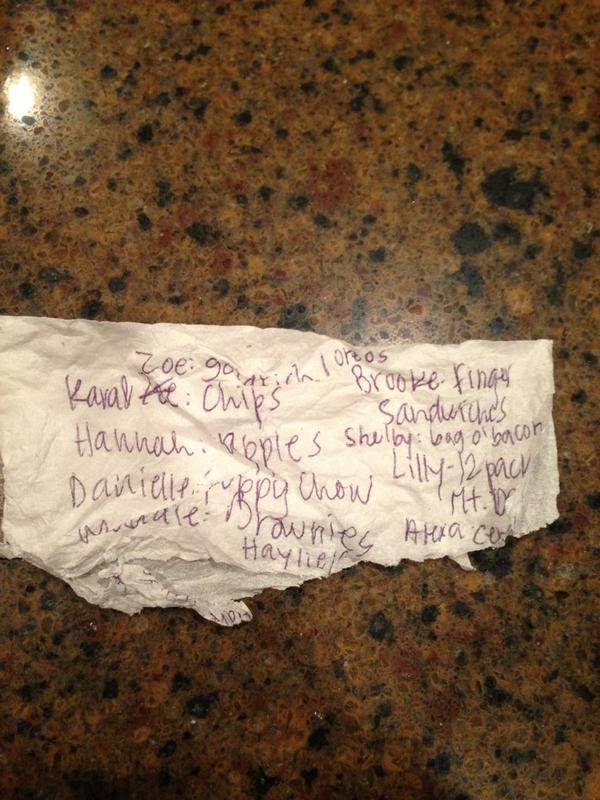 Zoe: goldfish / oreos
Kara: Chips
Hannah: Apples
Danielle: puppy chow
Brownies
Haylie
Brooke: finger
Sandwiches
Shelby: bag o' bacon
Lilly-12 pack
Mt.
Alexa: